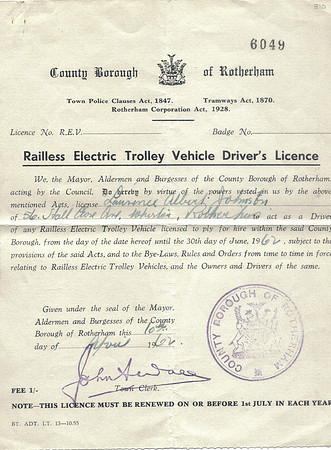 6049
County Borough of Rotherham
Town Police Clauses Act, 1847. Tramways Act, 1870.
Rotherham Corporation Act, 1928.
Licence No. R.E.V. Badge No.
Railless Electric Trolley Vehicle Driver's Licence
We, the Mayor, Aldermen and Burgesses of the County Borough of Rotherham,
acting by the Council, Do hereby by virtue of the powers vested in us by the above-
mentioned Acts, license Laurence Albert Johnson
of Hall Close Ave, Whiston, Rotherham to act as a Driver
of any Railless Electric Trolley Vehicle licensed to ply for hire within the said County
Borough, from the day of the date hereof until the 30th day of June, 1962, subject to the
provisions of the said Acts, and to the Bye-Laws, Rules and Orders from time to time in force
relating to Railless Electric Trolley Vehicles, and the Owners and Drivers of the same.
Given under the seal of the Mayor,
Aldermen and Burgesses of the County
Borough of Rotherham this 10th
day of April 1962.
COUNTY BOROUGH OF ROTHERHAM
FEE 1/- Town Clerk.
NOTE—THIS LICENCE MUST BE RENEWED ON OR BEFORE 1st JULY IN EACH YEAR
BT. ADT. LT. 13—10.55